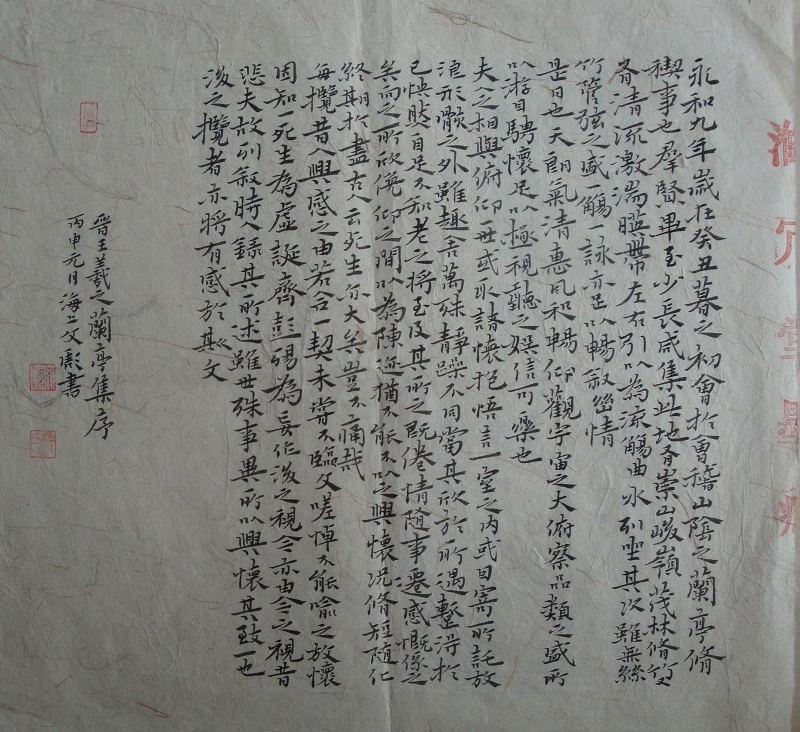 永和九年歲在癸丑暮之初會於會稽山陰之蘭亭脩
禊事也羣賢畢至少長咸集此地有崇山峻嶺茂林脩竹又
有清流激湍暎帶左右引以為流觴曲水列坐其次雖無絲
竹管弦之盛一觴一詠亦足以暢敘幽情
是日也天朗氣清惠風和暢仰觀宇宙之大俯察品類之盛所
以游目騁懷足以極視聽之娛信可樂也
夫人之相與俯仰一世或取諸懷抱悟言一室之內或因寄所託放
浪形骸之外雖趣舍萬殊靜躁不同當其欣於所遇蹔得於
己怏然自足不知老之將至及其所之既倦情隨事遷感慨係之
矣向之所欣俛仰之間以為陳迹猶不能不以之興懷況脩短隨化
終期於盡古人云死生亦大矣豈不痛哉
每攬昔人興感之由若合一契未嘗不臨文嗟悼不能喻之於懷
固知一死生為虛誕齊彭殤為妄作後之視今亦由今之視昔
悲夫故列敘時人錄其所述雖世殊事異所以興懷其致一也
後之攬者亦將有感於斯文
晉王羲之蘭亭集序
丙申元月海文書